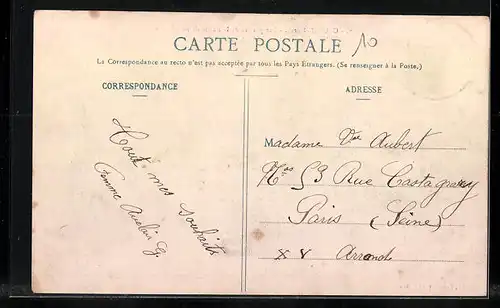 CARTE POSTALE
10
La Correspondance au recto n'est pas acceptée par tous les Pays Étrangers. (Se renseigner à la Poste.)
CORRESPONDANCE
ADRESSE
mes souhaits
Madame Vve Aubert
53 Rue Castagnary
Paris (Seine)
XV Arrond